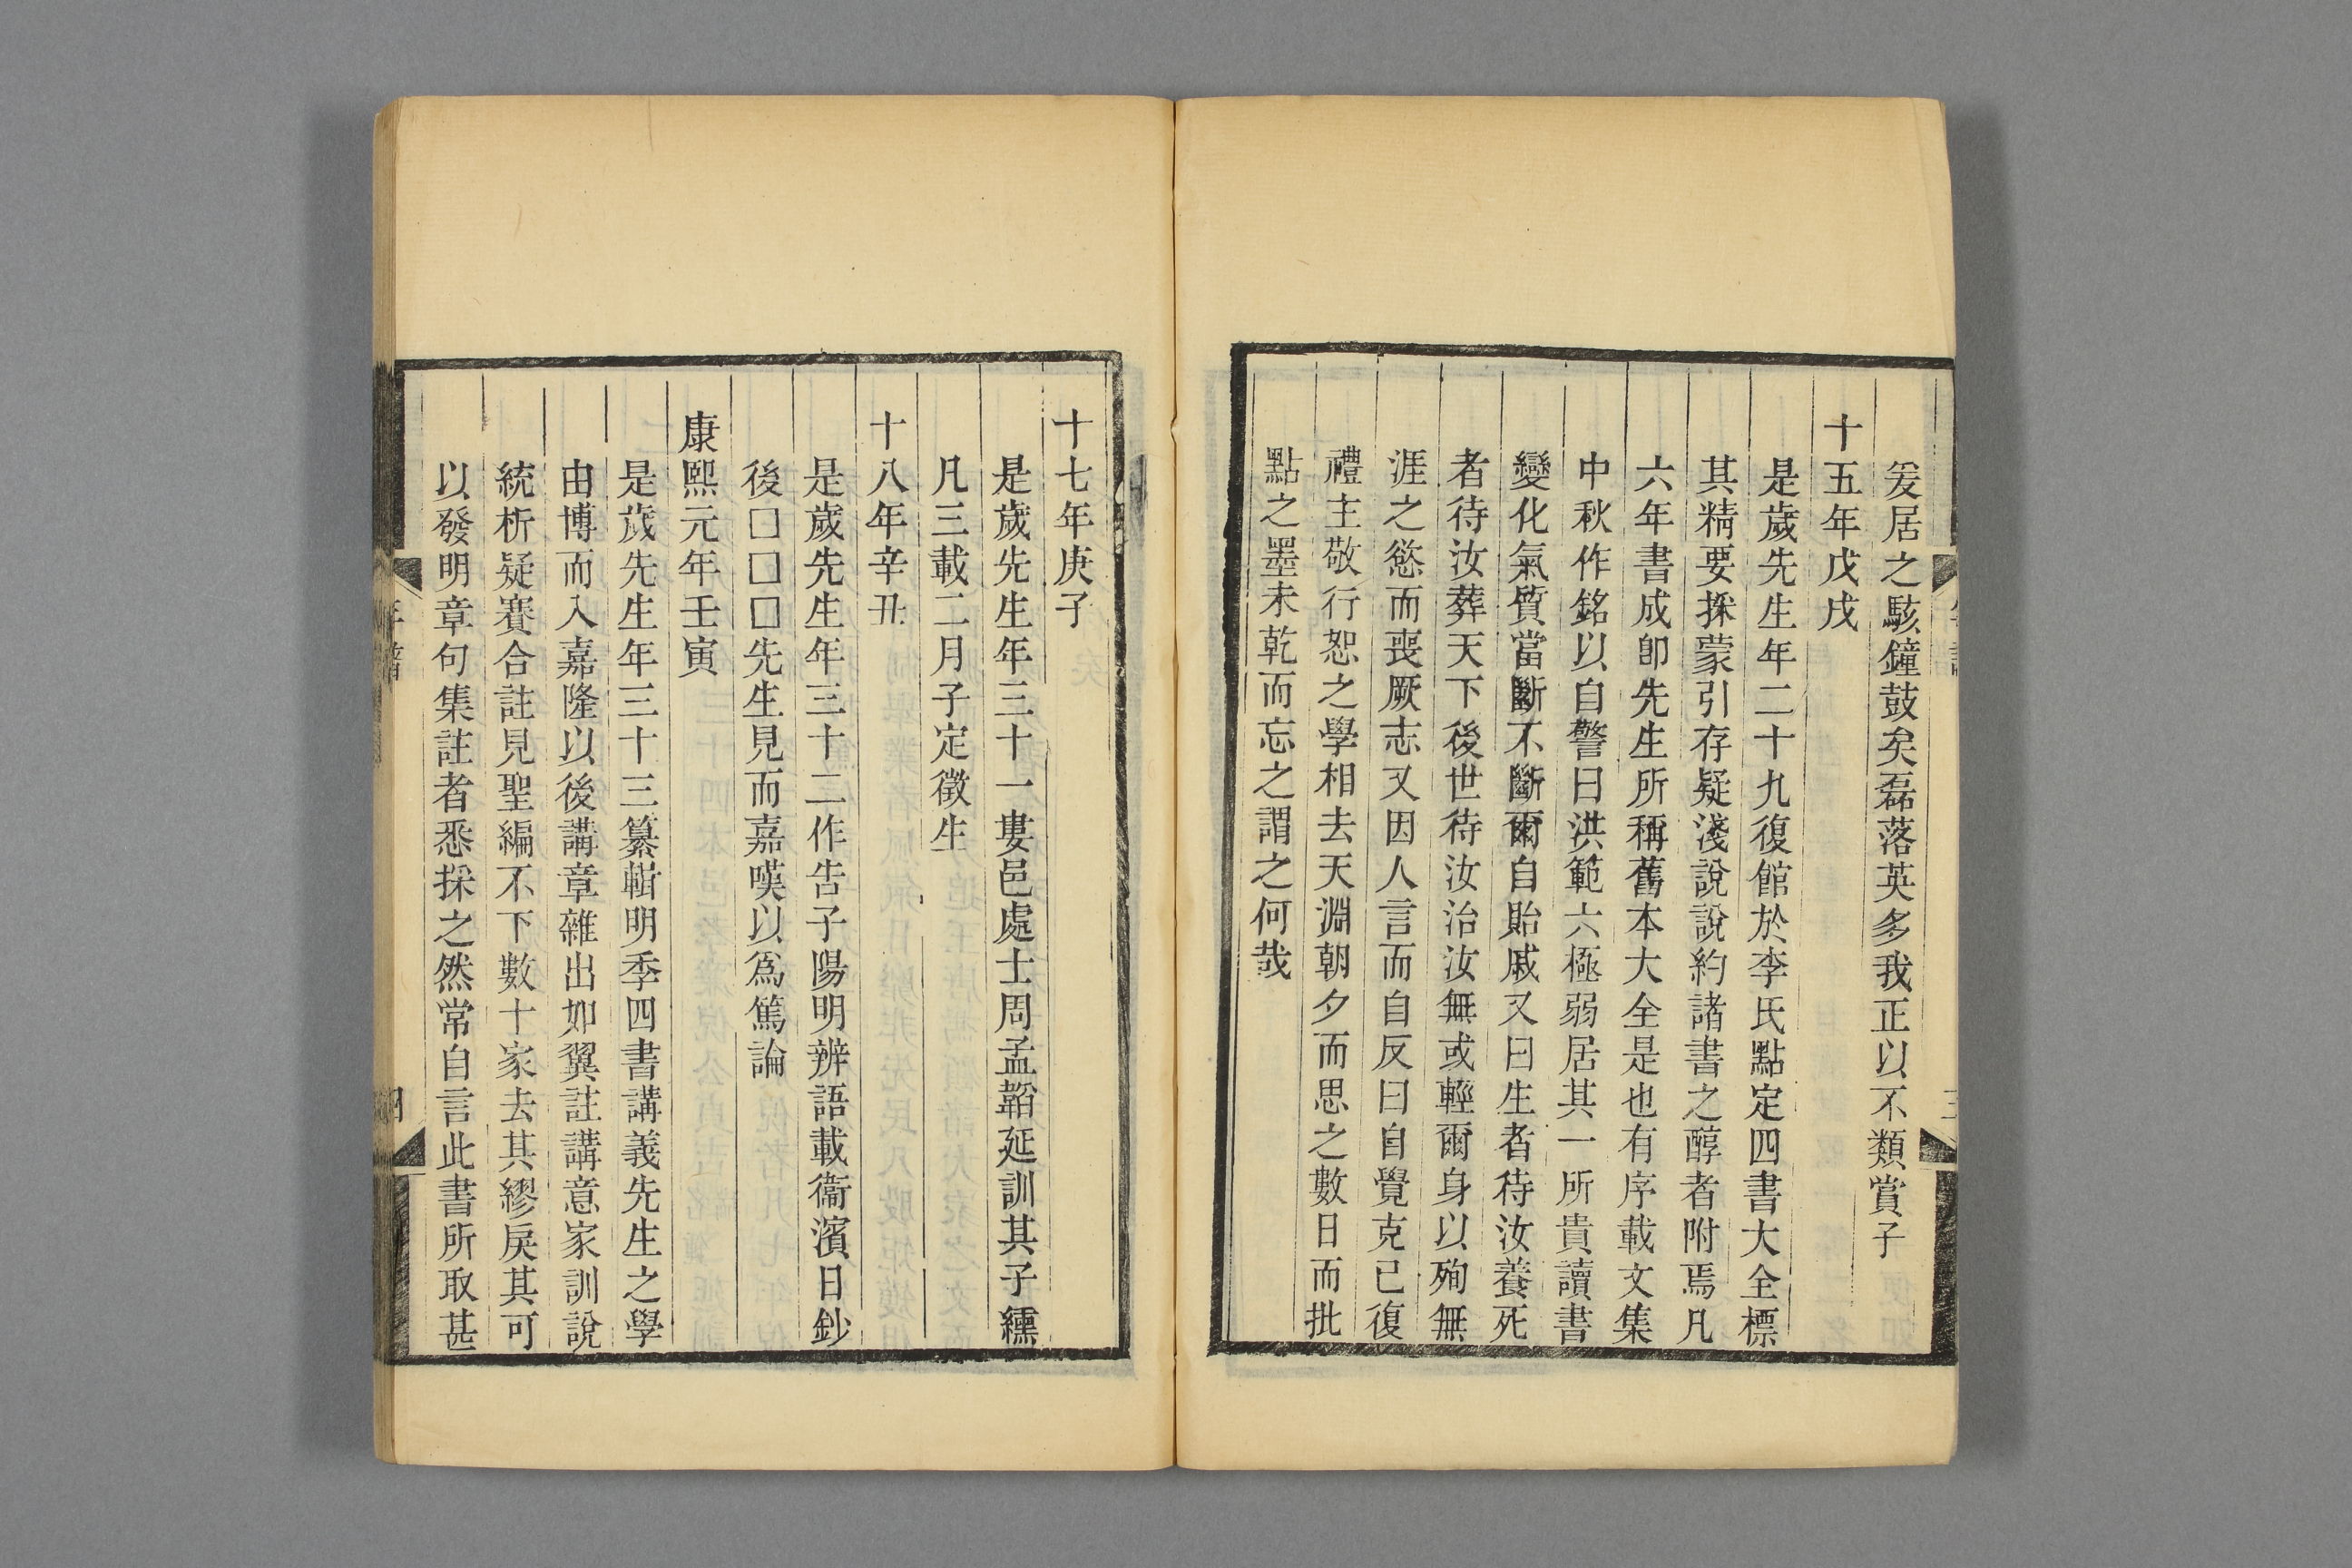 爰居之駭鐘鼓矣磊落英多我正以不類賞子
十五年戊戌
是歲先生年二十九復館於李氏點定四書大全標
其精要採蒙引存疑淺說說約諸書之醇者附焉凡
六年書成卽先生所稱舊本大全是也有序載文集
中秋作銘以自警曰洪範六極弱居其一所貴讀書
變化氣質當斷不斷爾自貽戚又曰生者待汝養死
者待汝葬天下後世待汝治汝無或輕爾身以殉無
涯之慾而喪厥志又因人言而自反曰自覺克己復
禮主敬行恕之學相去天淵朝夕而思之數日而批
點之墨未乾而忘之謂之何哉
十七年庚子
是歲先生年三十一婁邑處士周孟韜延訓其子纁
凡三載二月子定徵生
十八年辛丑
是歲先生年三十二作告子陽明辨語載衞濱日鈔
後□□□先生見而嘉嘆以爲篤論
康熙元年壬寅
是歲先生年三十三纂輯明季四書講義先生之學
由博而入嘉隆以後講章雜出如翼註講意家訓說
統析疑賽合註見聖編不下數十家去其繆戾其可
以發明章句集註者悉採之然常自言此書所取甚
年譜